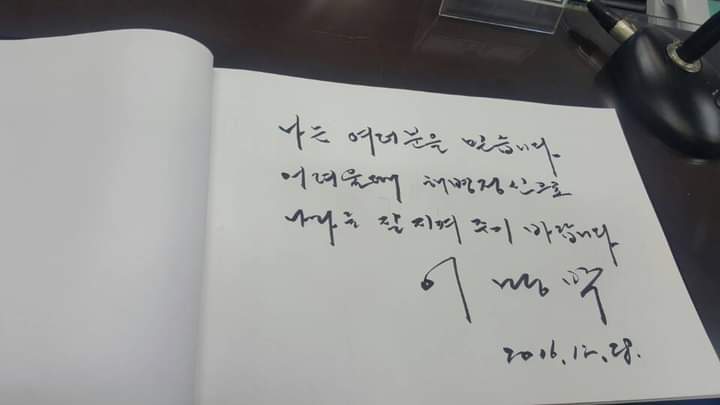 나는 여러분을 믿습니다.
어려울때 해병정신으로
나라를 잘 지켜 주기 바랍니다.
이 명 박
2016. 12. 28.